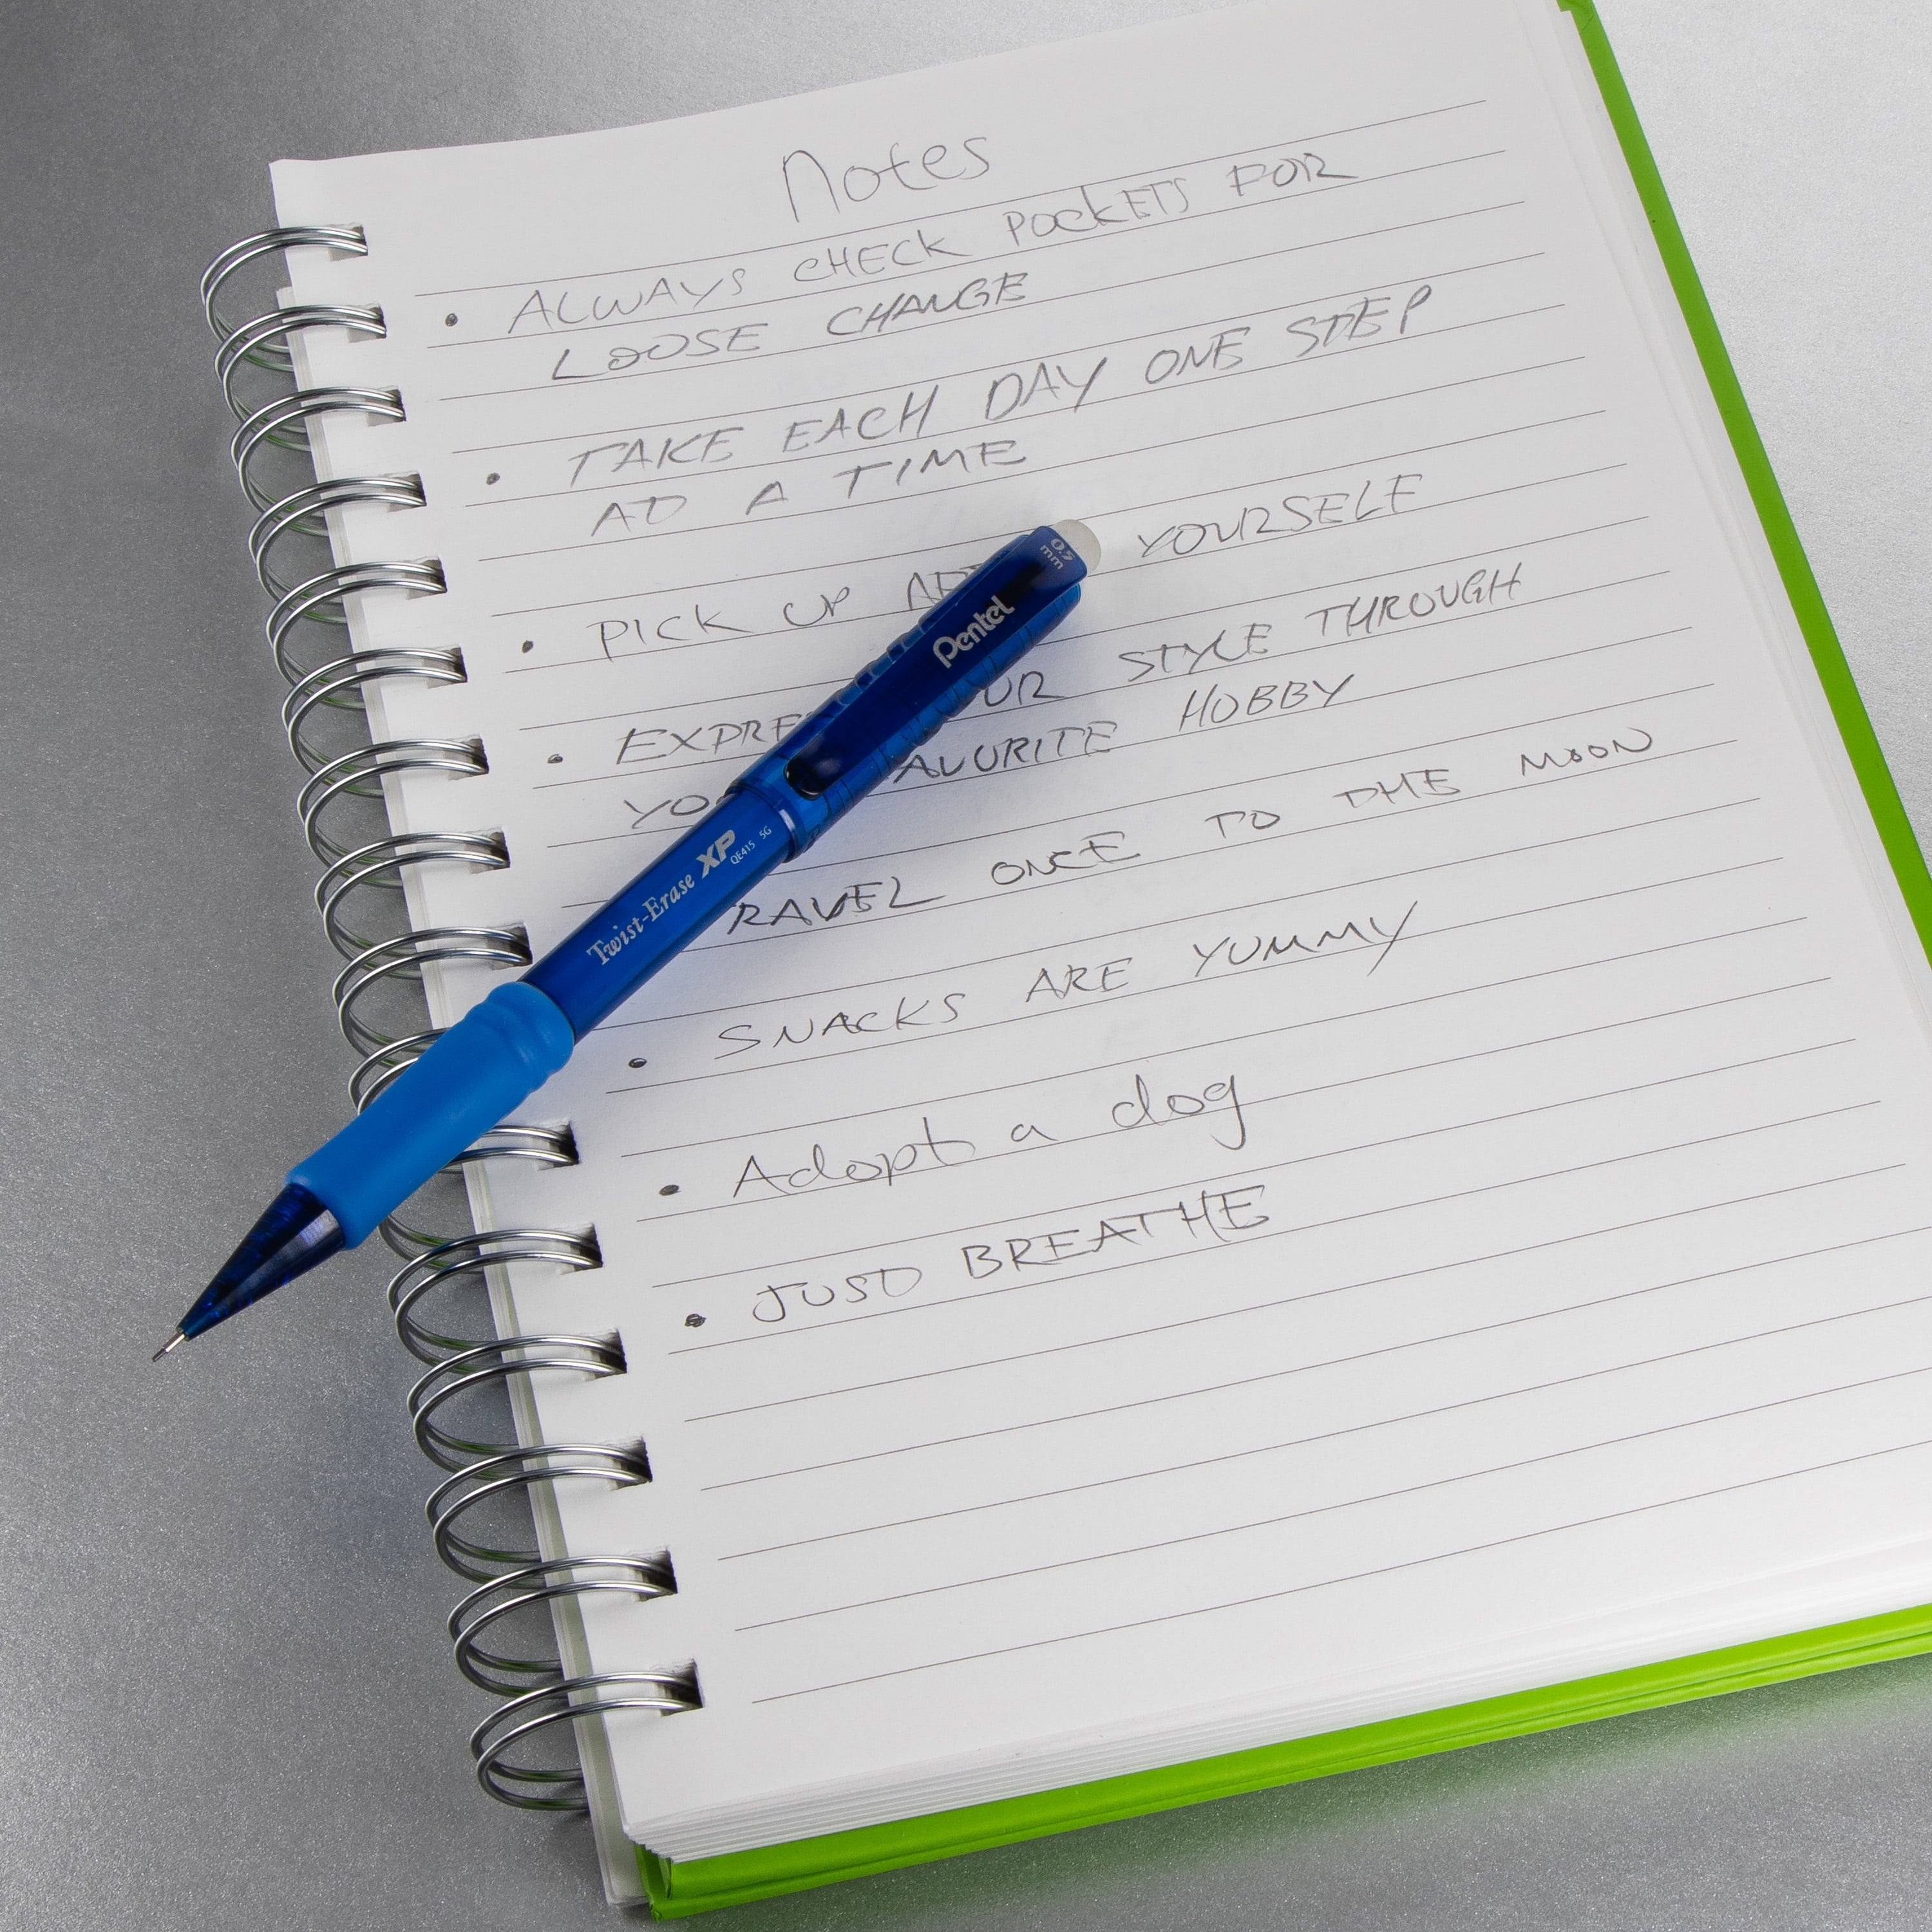 Notes
• ALWAYS CHECK POCKETS FOR
LOOSE CHANGE
• TAKE EACH DAY ONE STEP
AT A TIME
• PICK UP YOURSELF
• STYLE THROUGH
HOBBY
ONCE TO THE MOON
• SNACKS ARE YUMMY
• Adopt a dog
• JUST BREATHE
0.5 mm
Pentel
Twist-Erase XP QE415 SG